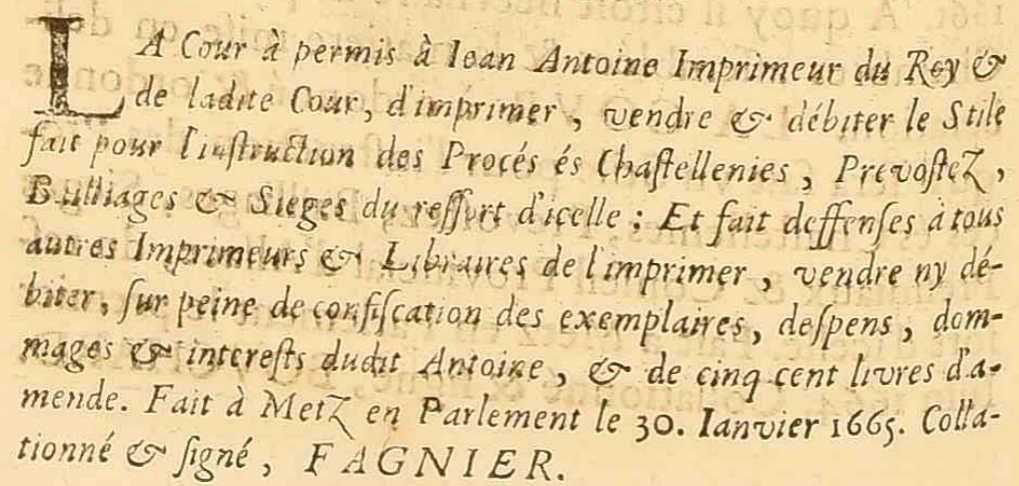 LA Cour à permis à Iean Antoine Imprimeur du Roy &
de ladite Cour, d'imprimer, vendre & débiter le Stile
fait pour l'inſtruction des Procés és Chaſtellenies, Prevoſtez,
Bailliages & Sieges du reſſort d'icelle : Et fait deffenſes à tous
autres Imprimeurs & Libraires de l'imprimer, vendre ny dé-
biter, ſur peine de confiſcation des exemplaires, deſpens, dom-
mages & intereſts dudit Antoine, & de cinq cent livres d'a-
mende. Fait à Metz en Parlement le 30. Ianvier 1665. Colla-
tionné & ſigné, FAGNIER.